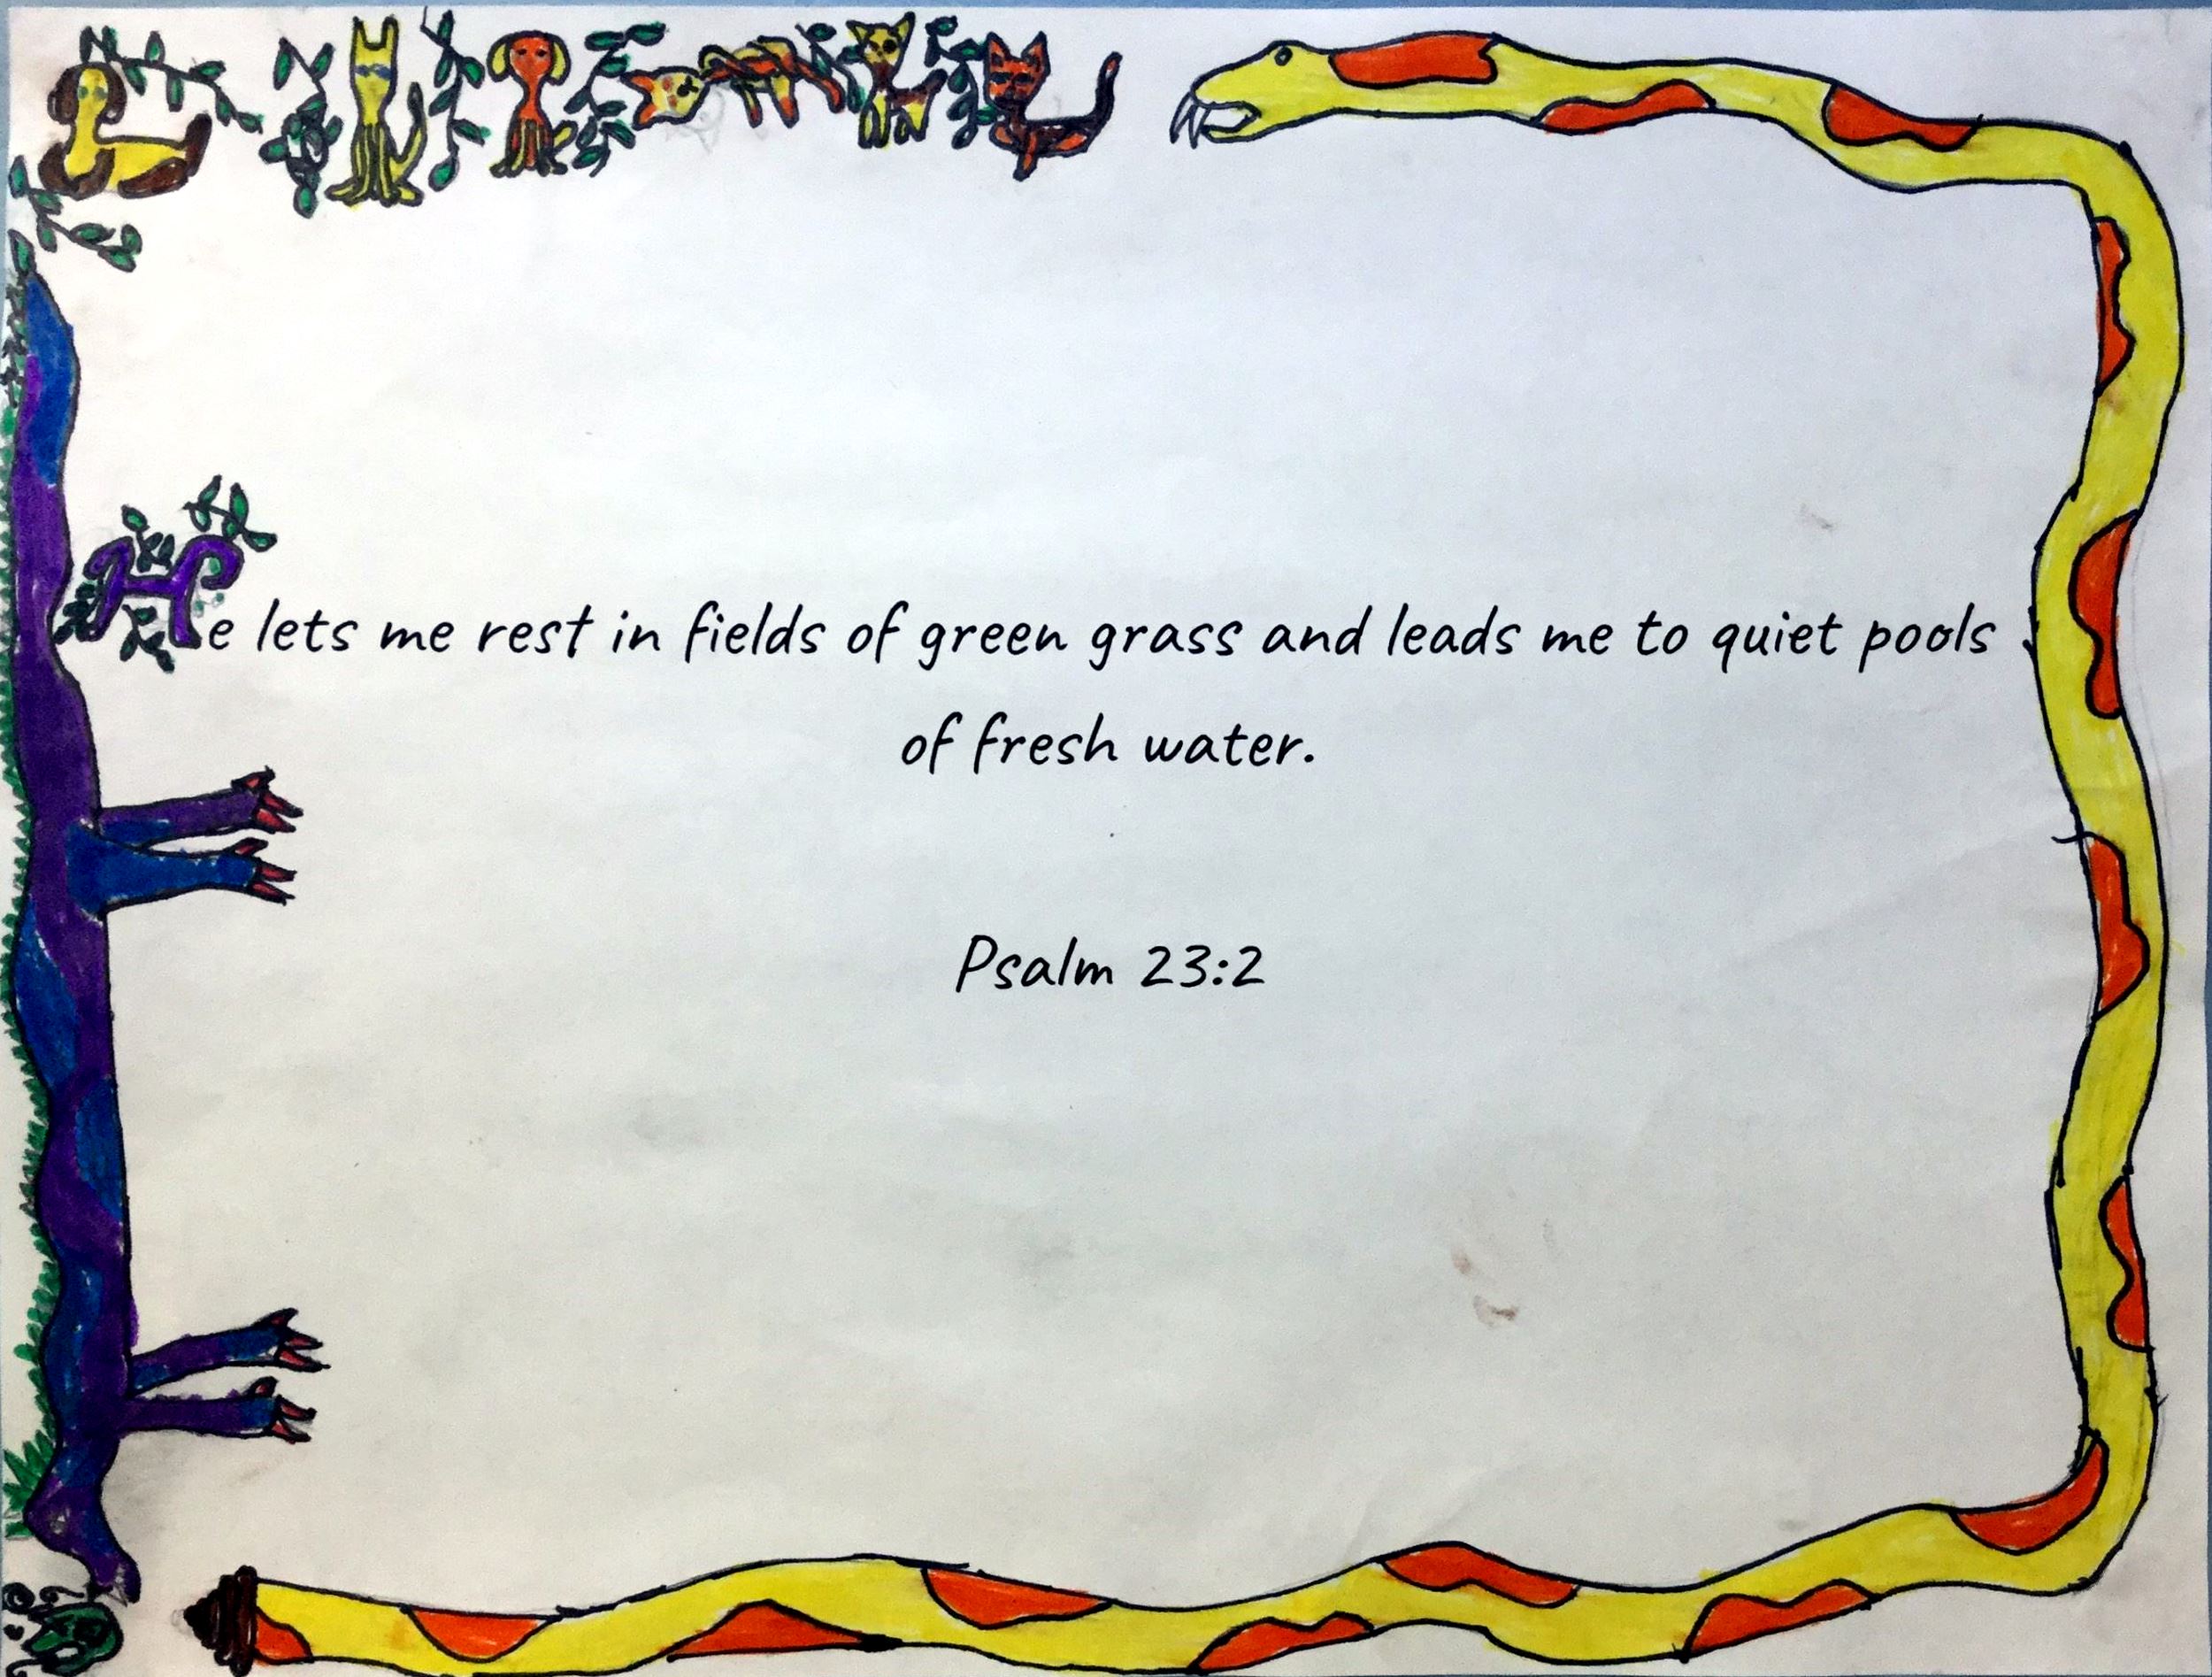 He lets me rest in fields of green grass and leads me to quiet pools
of fresh water.
Psalm 23:2